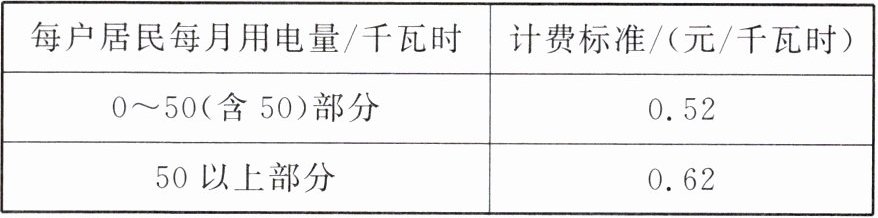 每户居民每月用电量/千瓦时 计费标准/(元/千瓦时)
0～50(含50)部分 0.52
50以上部分 0.62